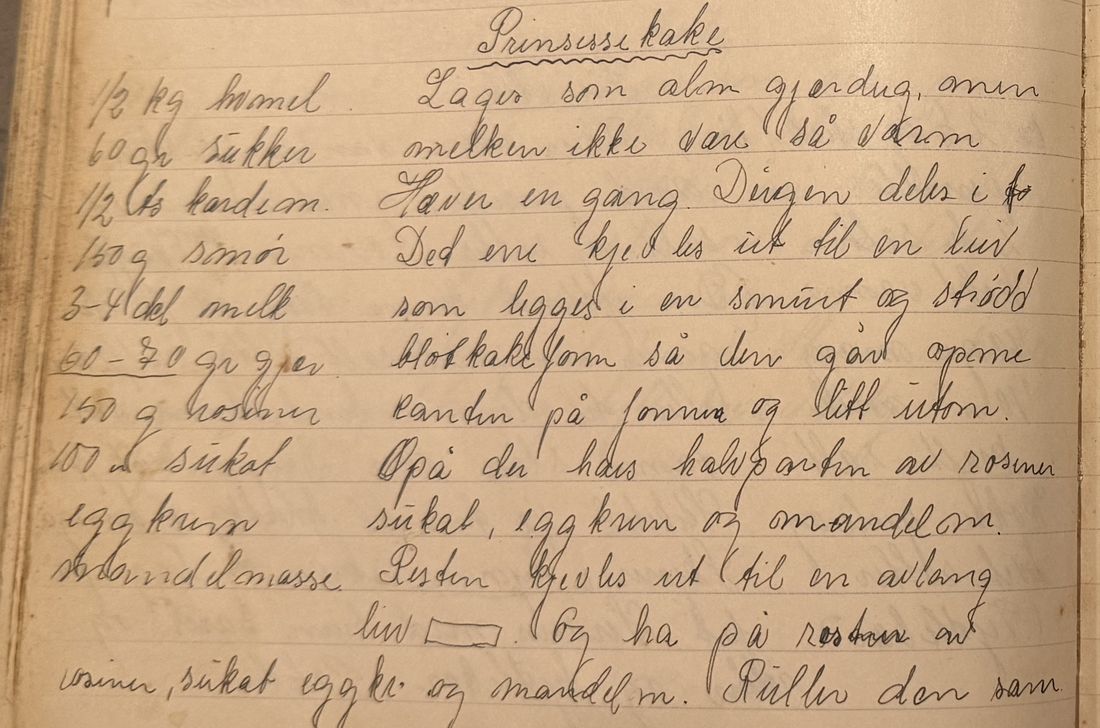 Prinsessekake
1/2 kg hvmel. Lages som alm gjærdeig, men
60 gr sukker melken ikke være så varm
1/2 ts kardem. Hæver en gang. Deigen deles i to
150 g smör Ded ene kjevles ut til en leiv
3-4 del melk som legges i en smurt og strødd
60-70 gr gjær bløtkakeform så den går oppme
150 g rosiner kanten på formen og litt utom.
100 " sukat Opå der haes halvparten av rosiner
eggkrem sukat, eggkrem og mandelm.
mandelmasse. Resten kjevles ut til en avlang
leiv . Og ha på resten av
rosiner, sukat eggkr. og mandelm. Ruller den sam